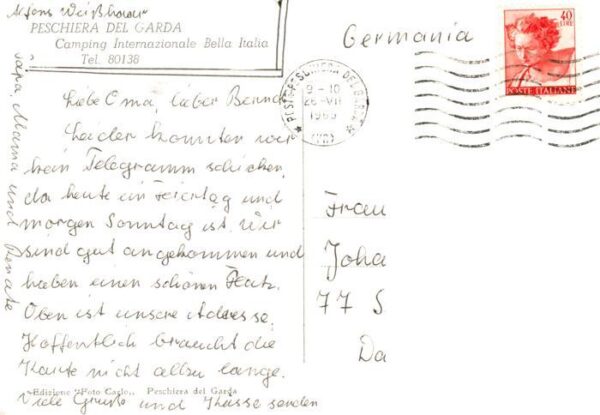 Alfons Weißhaar
PESCHIERA DEL GARDA
Camping Internazionale Bella Italia
Tel. 80138
Germania
40
LIRE
POSTE ITALIANE
PESCHIERA DEL GARDA
9-10
26-VII
(VR)
Liebe Oma, lieber Bernd
Leider konnten wir
kein Telegramm schicken,
da heute ein Feiertag und
morgen Sonntag ist. Wir
sind gut angekommen und
haben einen schönen Platz.
Oben ist unsere Adresse.
Hoffentlich braucht die
Karte nicht allzu lange.
Viele Grüße und Küsse senden
Papa, Mama und Renate
Frau
Joha
77 S
Da
Edizione "Foto Carlo" Peschiera del Garda